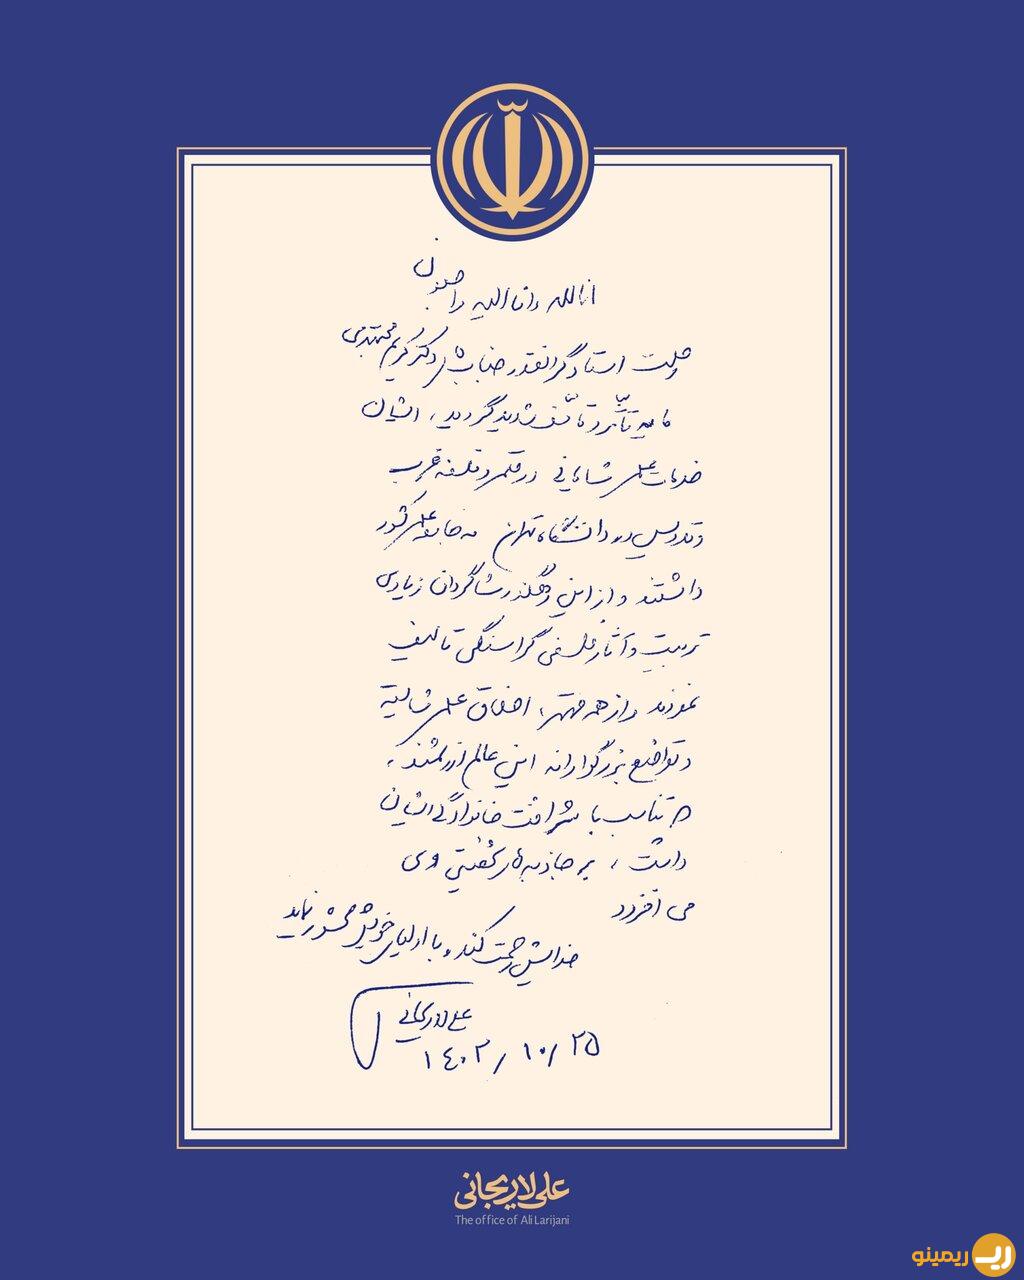 انا لله و انا الیه راجعون
رحلت استاد گرانقدر جناب آقای دکتر کریم مجتهدی
مایه تأثر و تأسف شدید گردید، ایشان
خدمات علمی شایانی در قلمرو فلسفه غرب
و تدریس در دانشگاه تهران به جامعه علمی کشور
داشتند و از این رهگذر شاگردان زیادی
تربیت و آثار فلسفی گرانسنگی تالیف
نمودند و از همه مهمتر، اخلاق علمی شایسته
و تواضع بزرگوارانه این عالم ارزشمند که
تناسب با شرافت خانوادگی ایشان
داشت، بر جاذبه‌های شخصیتی وی
می افزود
خدایش رحمت کند و با اولیای خویش محشور نماید
علی لاریجانی
۱۴۰۲/۱۰/۲۵
علی لاریجانی
The office of Ali Larijani
ریمینو